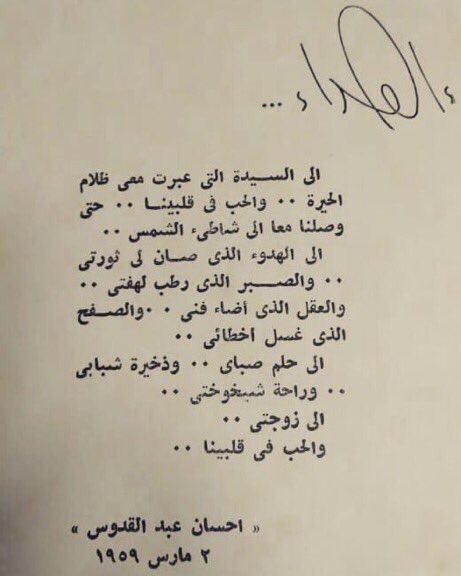 الهداء ...
الى السيدة التى عبرت معى ظلام
الحيرة .. والحب فى قلبينا .. حتى
وصلنا معا الى شاطىء الشمس ..
الى الهدوء الذى صان لى ثورتى
.. والصبر الذى رطب لهفتى ..
والعقل الذى أضاء فنى .. والصفح
الذى غسل أخطائى ..
الى حلم صباى .. وذخيرة شبابى
.. وراحة شيخوختى ..
الى زوجتى ..
والحب فى قلبينا ..
« احسان عبد القدوس »
٢ مارس ١٩٥٩